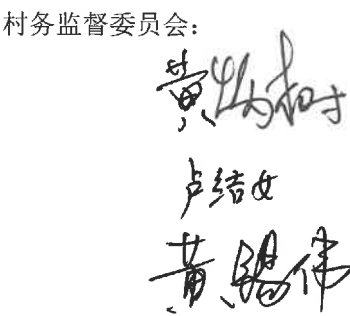 村务监督委员会：
黄炳树
卢结女
黄锡伟